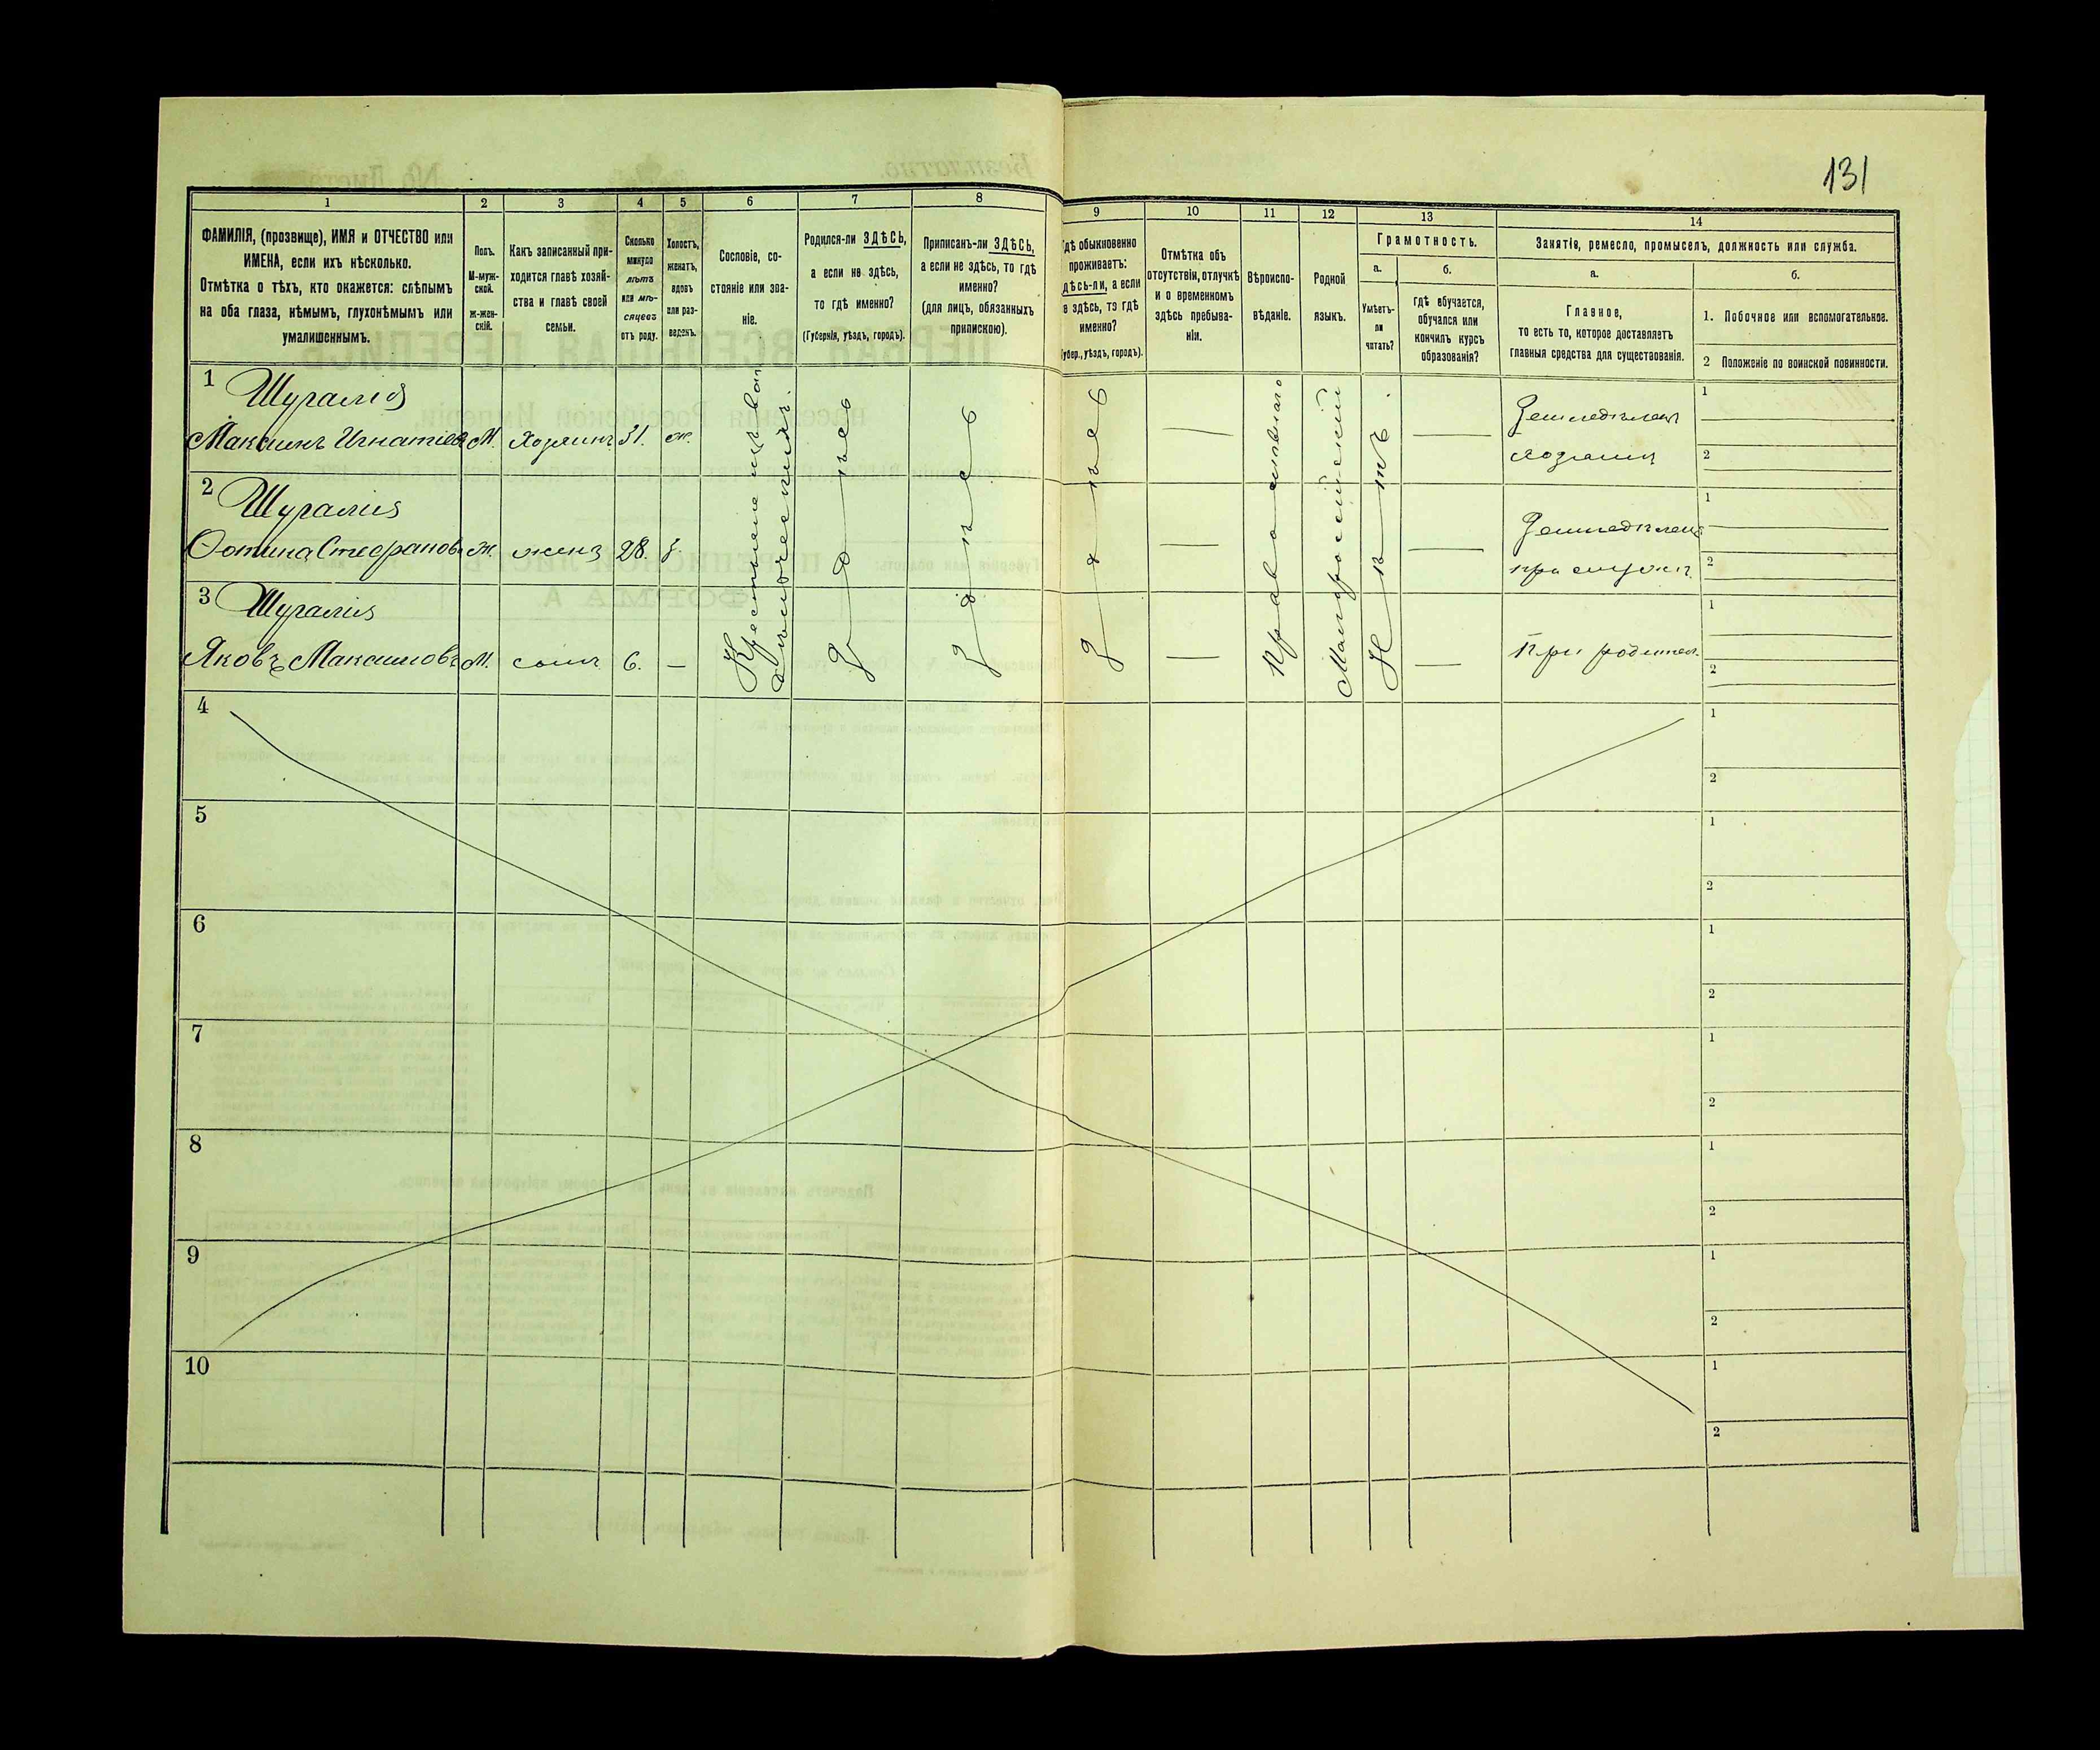 131
1
2
3
4
5
6
7
8
9
10
11
12
13
14
ФАМИЛІЯ, (прозвище), ИМЯ и ОТЧЕСТВО или
ИМЕНА, если ихъ нѣсколько.
Отмѣтка о тѣхъ, кто окажется: слѣпымъ
на оба глаза, нѣмымъ, глухонѣмымъ или
умалишеннымъ.
Полъ.
М-муж-
ской.
ж-жен-
скій.
Какъ записанный при-
ходится главѣ хозяй-
ства и главѣ своей
семьи.
Сколько
минуло
лѣтъ
или мѣ-
сяцевъ
отъ роду.
Холостъ,
женатъ,
вдовъ
или раз-
веденъ.
Сословіе, со-
стояніе или зва-
ніе.
Родился-ли ЗДѢСЬ,
а если не здѣсь,
то гдѣ именно?
(Губернія, уѣздъ, городъ).
Приписанъ-ли ЗДѢСЬ,
а если не здѣсь, то гдѣ
именно?
(для лицъ, обязанныхъ
припискою).
гдѣ обыкновенно
проживаетъ:
здѣсь-ли, а если
не здѣсь, то гдѣ
именно?
(Губер., уѣздъ, городъ).
Отмѣтка объ
отсутствіи, отлучкѣ
и о временномъ
здѣсь пребыва-
ніи.
Вѣроиспо-
вѣданіе.
Родной
языкъ.
Грамотность.
а.
б.
Умѣетъ-
ли
читать?
гдѣ обучается,
обучался или
кончилъ курсъ
образованія?
Занятіе, ремесло, промыселъ, должность или служба.
а.
б.
Главное,
то есть то, которое доставляетъ
главныя средства для существованія.
1. Побочное или вспомогательное.
2 Положеніе по воинской повинности.
1
Максимъ Игнатіев М. хозяинъ 31. ж.
Земледѣлец
хозяинъ
1
2
2
Фотина Стефанов ж. жена 28. з.
Земледѣлец
при мужѣ
1
2
3
Яковъ Максимовъ М. сынъ 6. —
При родител.
1
2
Крестьяне изъ
здѣсь
здѣсь
здѣсь
Православнаго
Малороссійскій
Нѣтъ.
4
1
2
5
1
2
6
1
2
7
1
2
8
1
2
9
1
2
10
1
2